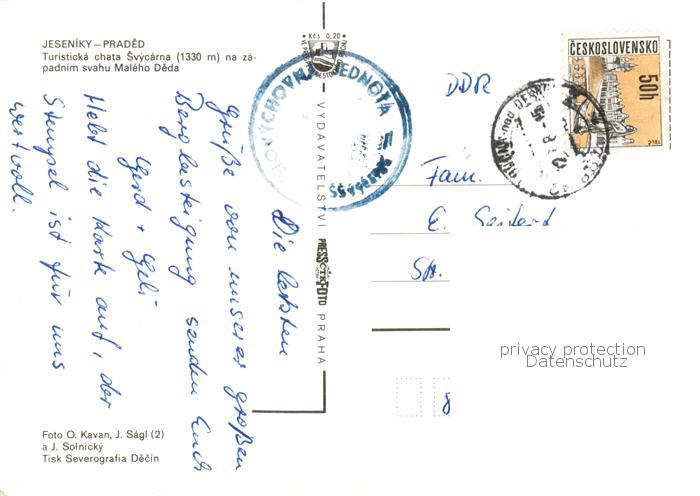 JESENÍKY—PRADĚD
Turistická chata Švýcárna (1330 m) na zá-
padním svahu Malého Děda
Die letzten
Grüße von unserer großen
Bergbesteigung senden Euch
Gerd + Geli
Hebt die Karte auf, der
Stempel ist für uns
wertvoll.
Foto O. Kavan, J. Ságl (2)
a J. Solnický
Tisk Severografia Děčín
Kčs 0,20
VYDAVATELSTVÍ PRESSFOTO PRAHA
VÝCHOVNÁ JEDNOTA
ČESKOSLOVENSKO
50h
TELČ
DDR
Fam.
E. Seifert
Str.
8
privacy protection
Datenschutz